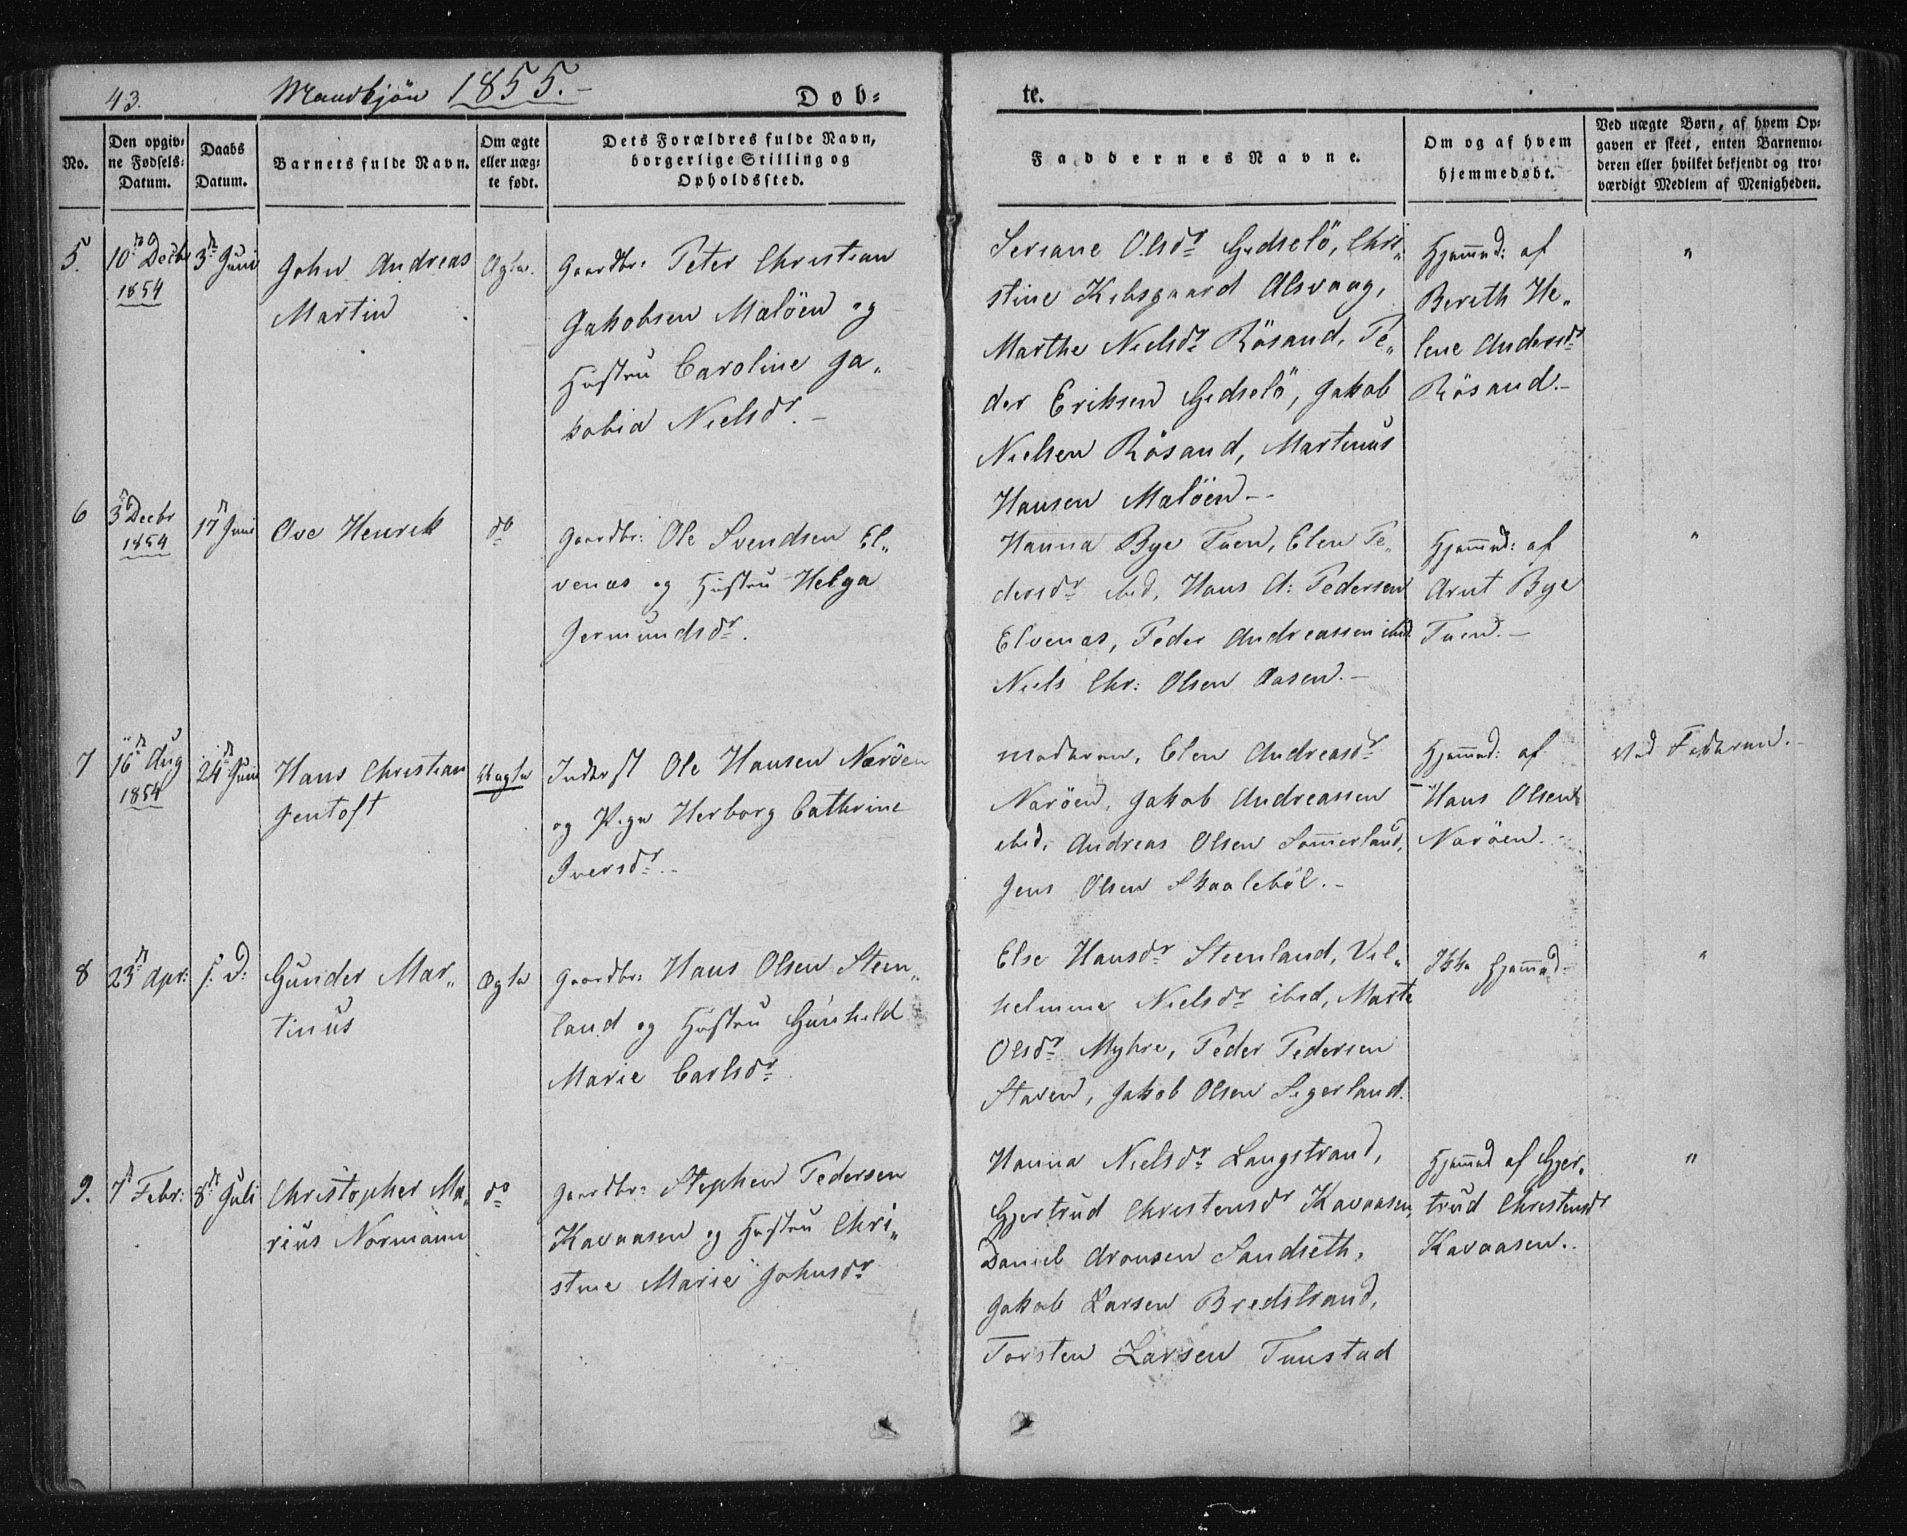 43. Mandkjön 1855.- Dob= te.
No.
Den opgiv=
ne Fødsels=
Datum.
Daabs
Datum.
Barnets fulde Navn.
Om ægte
eller uæg=
te født.
Dets Forældres fulde Navn,
borgerlige Stilling og
Opholdssted.
Faddernes Navne.
Om og af hvem
hjemmedøbt.
Ved uægte Børn, af hvem Op=
gaven er skeet, enten Barnemo=
deren eller hvilket bekjendt og tro=
værdigt Medlem af Menigheden.
5.
10de Decbr
1854
3die Juni
John Andreas
Martin
Ægte.
Gaardbr: Peter Christian
Jakobsen Maløen og
Hustru Caroline Ja„
kobia Nielsdr.-
Seriane Olsdr Gidselö, Chri„
stine Kibsgaard Alsvaag,
Marthe Nielsdr Rösand, Pe„
der Eriksen Gidselö, Jakob
Nielsen Rösand, Martinus
Hansen Maløen.-
Hjemmd: af
Bereth He„
lene Andersdr
Rösand.-
"
6
3die Decbr
1854
17de Juni
Ove Henrik
do
Gaardbr: Ole Svendsen El„
venæs og Hustru Helga
Jermundsdr.
Hanna Bye Tuen, Elen Pe„
dersdr ibid, Hans A: Pedersen
Elvenæs, Peder Andreassen ibid.
Niels Chr: Olsen Aasen.-
Hjemmd: af
Arnt Bye
Tuen.-
"
7
16de Aug
1854
24de Juni
Hans Christian
Jentoft
Uægte
Inderst Ole Hansen Naröen
og Pige Herborg Cathrine
Iversdr.-
Moderen, Elen Andreasdr
Naröen, Jakob Andreassen
ibid, Andreas Olsen Sommerland,
Jens Olsen Skaaleböl.-
Hjemmd: af
Hans Olsen
Naröen.-
Ved Faderen.-
8
23de Apr:
s. D:
Gunder Mar„
tinus
Ægte
Gaardbr: Hans Olsen Steen„
land og Hustru Gunhild
Marie Carlsdr
Else Hansdr Steenland, Vil„
helmine Nielsdr ibid, Marte
Olsdr Myhre, Peder Pedersen
Staven, Jakob Olsen Sigerland.
Ikke Hjemmd:
"
9.
7de Febr:
8de Juli
Christopher Ma„
rius Normann
do
Gaardbr: Stephen Pedersen
Kavaasen og Hustru Chri„
stine Marie Johnsdr
Hanna Nielsdr Langstrand,
Gjertrud Christensdr Kavaasen,
Daniel Aronsen Sandseth,
Jakob Larsen Bredstrand,
Torsten Larsen Tunstad
Hjemmd af Gjer„
trud Christensdr
Kavaasen.-
"